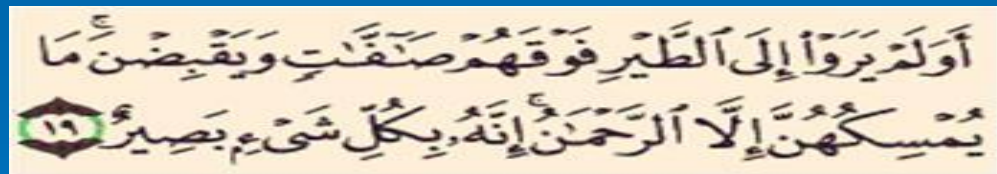 أَوَلَمْ يَرَوْا۟ إِلَى ٱلطَّيْرِ فَوْقَهُمْ صَـٰٓفَّـٰتٍ وَيَقْبِضْنَ ۚ مَا
يُمْسِكُهُنَّ إِلَّا ٱلرَّحْمَـٰنُ ۚ إِنَّهُۥ بِكُلِّ شَىْءٍۭ بَصِيرٌ ١٩